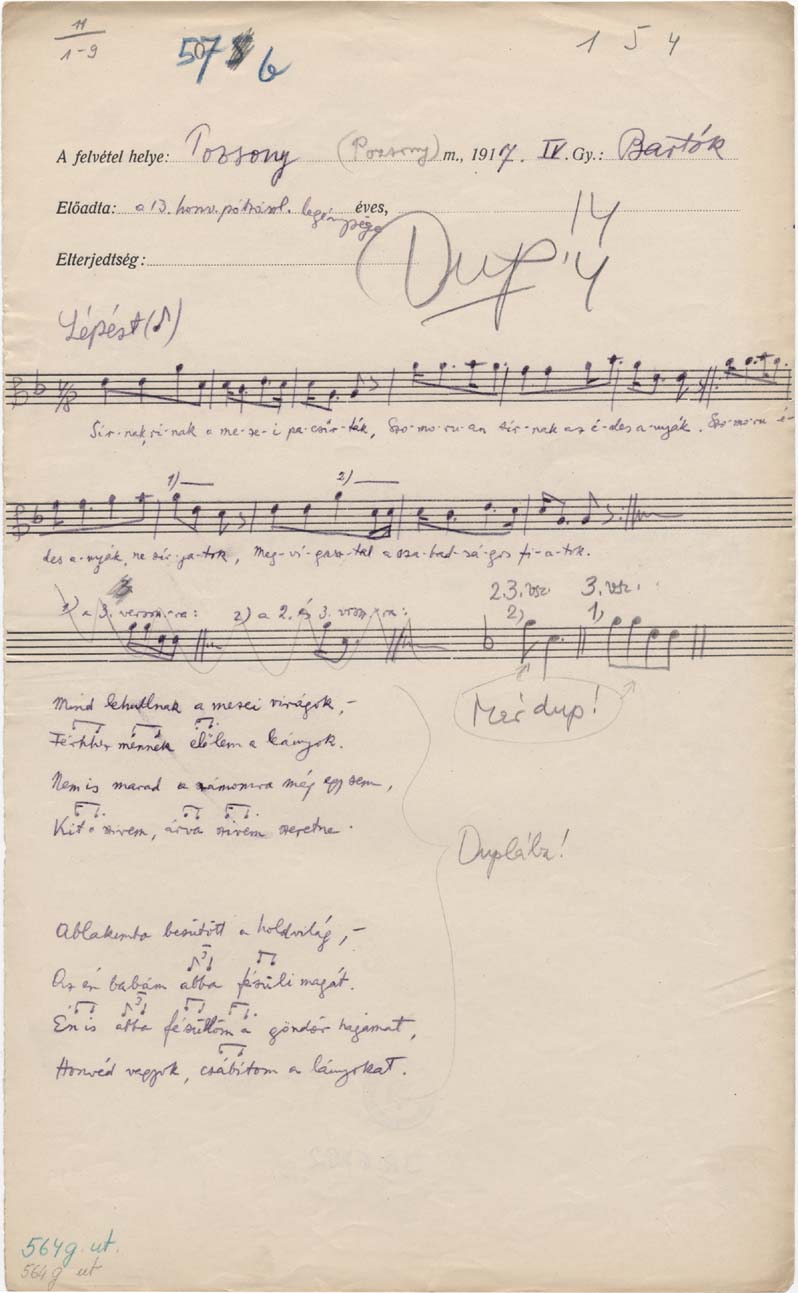 11
1-9
507 b
1 5 4
A felvétel helye: Pozsony (Pozsony) m., 1917. IV. Gy.: Bartók
Előadta: a 13. honv. pótzászl. legénysége éves,
14
Elterjedtség:
Dup 14
Lépést (♪)
Sír-nak, rí-nak a me-ze-i pa-csir-ták, Szo-mo-ru-an sír-nak az é-des a-nyák. Szo-mo-ru é-
1) 2)
des a-nyák, ne sír-ja-tok, Meg-vi-gasz-tal a sza-bad-sá-gos fi-a-tok.
2.3. vsz. 3. vsz.
1) a 3. versszakra: 2) a 2. és 3. : 2) 1)
Mind lehullnak a mezei virágok,-
Már dup!
Férhher mennek előlem a lányok.
Nem is marad a számomra még egy sem,
Kit a szivem, árva szivem szeretne.
Duplába!
Ablakomba besütött a holdvilág,-
3
Az én babám abba fésüli magát.
3
Én is abba fésültöm a göndör hajamat,
Honvéd vagyok, csábítom a lányokat.
564g. ut.
564g ut